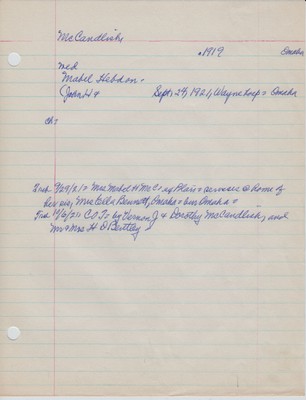 McCandlish
1919 Omaha
Wed
Mabel Hebdon
John H & Sept 24, 1921, Wayne Omaha
ch:
9/29/21 Mrs Mabel H McC of services @ home of
her sis, Mrs Bennett, Omaha bur Omaha
C of T by Vernon J & Dorothy McCandlish, and
Mr & Mrs H D Bentley